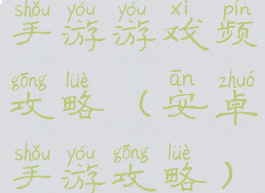 shǒu yóu yóu xì pín
手游游戏频
gōng lüè ān zhuó
攻略（安卓
shǒu yóu gōng lüè
手游攻略）